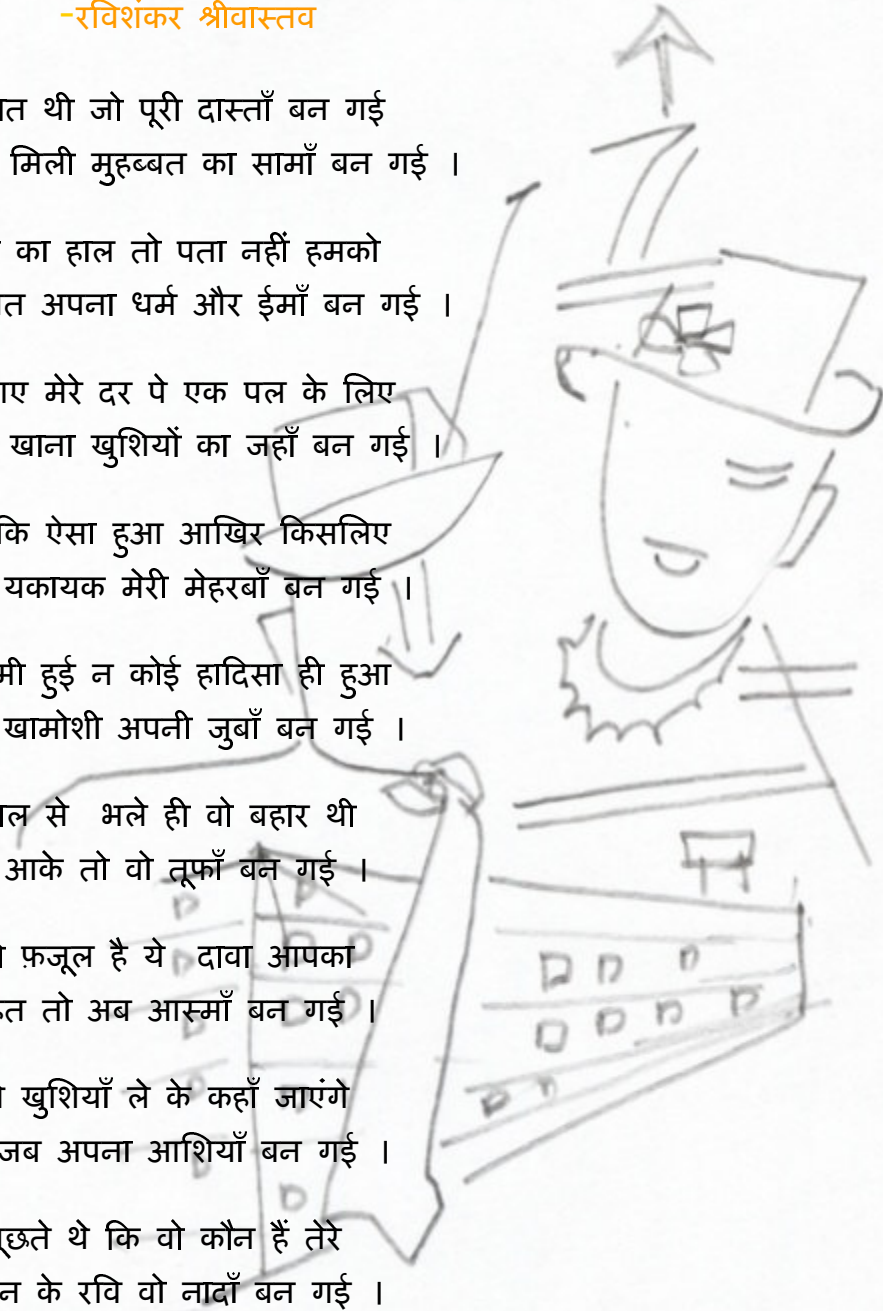 -रविशंकर श्रीवास्तव
थी जो पूरी दास्ताँ बन गई
मिली मुहब्बत का सामाँ बन गई ।
का हाल तो पता नहीं हमको
अपना धर्म और ईमाँ बन गई ।
मेरे दर पे एक पल के लिए
खाना खुशियों का जहाँ बन गई ।
कि ऐसा हुआ आखिर किसलिए
यकायक मेरी मेहरबाँ बन गई ।
हुई न कोई हादिसा ही हुआ
खामोशी अपनी जुबाँ बन गई ।
से भले ही वो बहार थी
आके तो वो तूफाँ बन गई ।
फ़जूल है ये दावा आपका
तो अब आस्माँ बन गई ।
खुशियाँ ले के कहाँ जाएंगे
जब अपना आशियाँ बन गई ।
थे कि वो कौन हैं तेरे
के रवि वो नादाँ बन गई ।